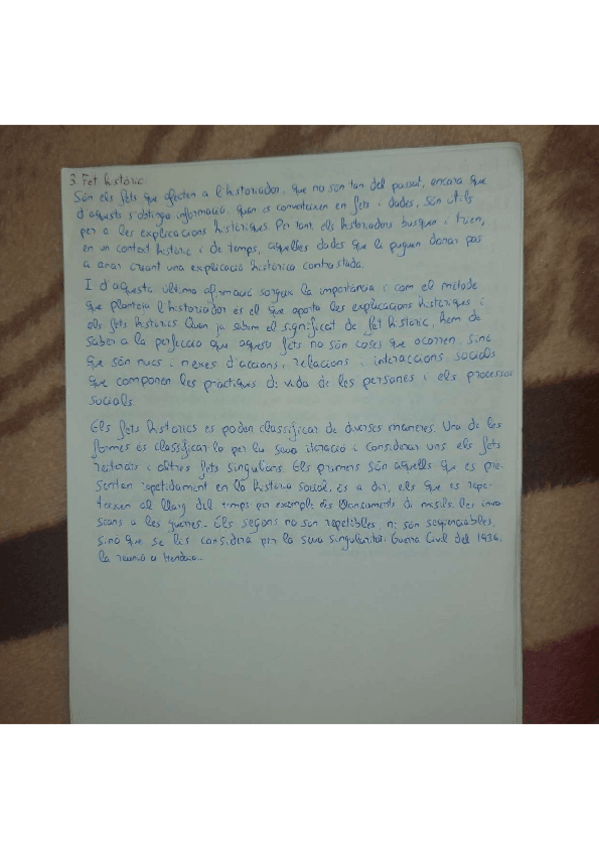 3. Fet històric:
Són els fets que afecten a l'historiador, que no son tan del passat, encara que
d'aquests s'obtingui informació. Quan es converteixen en fets i dades, són útils
per a les explicacions històriques. Per tant els historiadors busquen i trien,
en un context històric i de temps, aquelles dades que li puguen donar pas
a anar creant una explicació històrica contrastada.
I d'aquesta última afirmació sorgeix la importància i com el mètode
que planteja l'historiador és el que aporta les explicacions històriques i
els fets històrics. Quan ja sabem el significat de fet històric, hem de
saber a la perfecció que aquests fets no són coses que ocorren, sinó
que són nucs i nexes d'accions, relacions i interaccions socials
que componen les pràctiques de vida de les persones i els processos
socials.
Els fets històrics es poden classificar de diverses maneres. Una de les
formes és classificar-lo per la seva iteració i considerar uns els fets
reiterats i altres fets singulars. Els primers són aquells que es pre-
senten repetidament en la història social, és a dir, els que es repe-
teixen al llarg del temps per exemple els llançaments de missils, les inva-
sions a les guerres... Els segons no son repetibles, ni són seqüenciables,
sinó que se les considera per la seva singularitat: Guerra Civil del 1936,
la reunió a